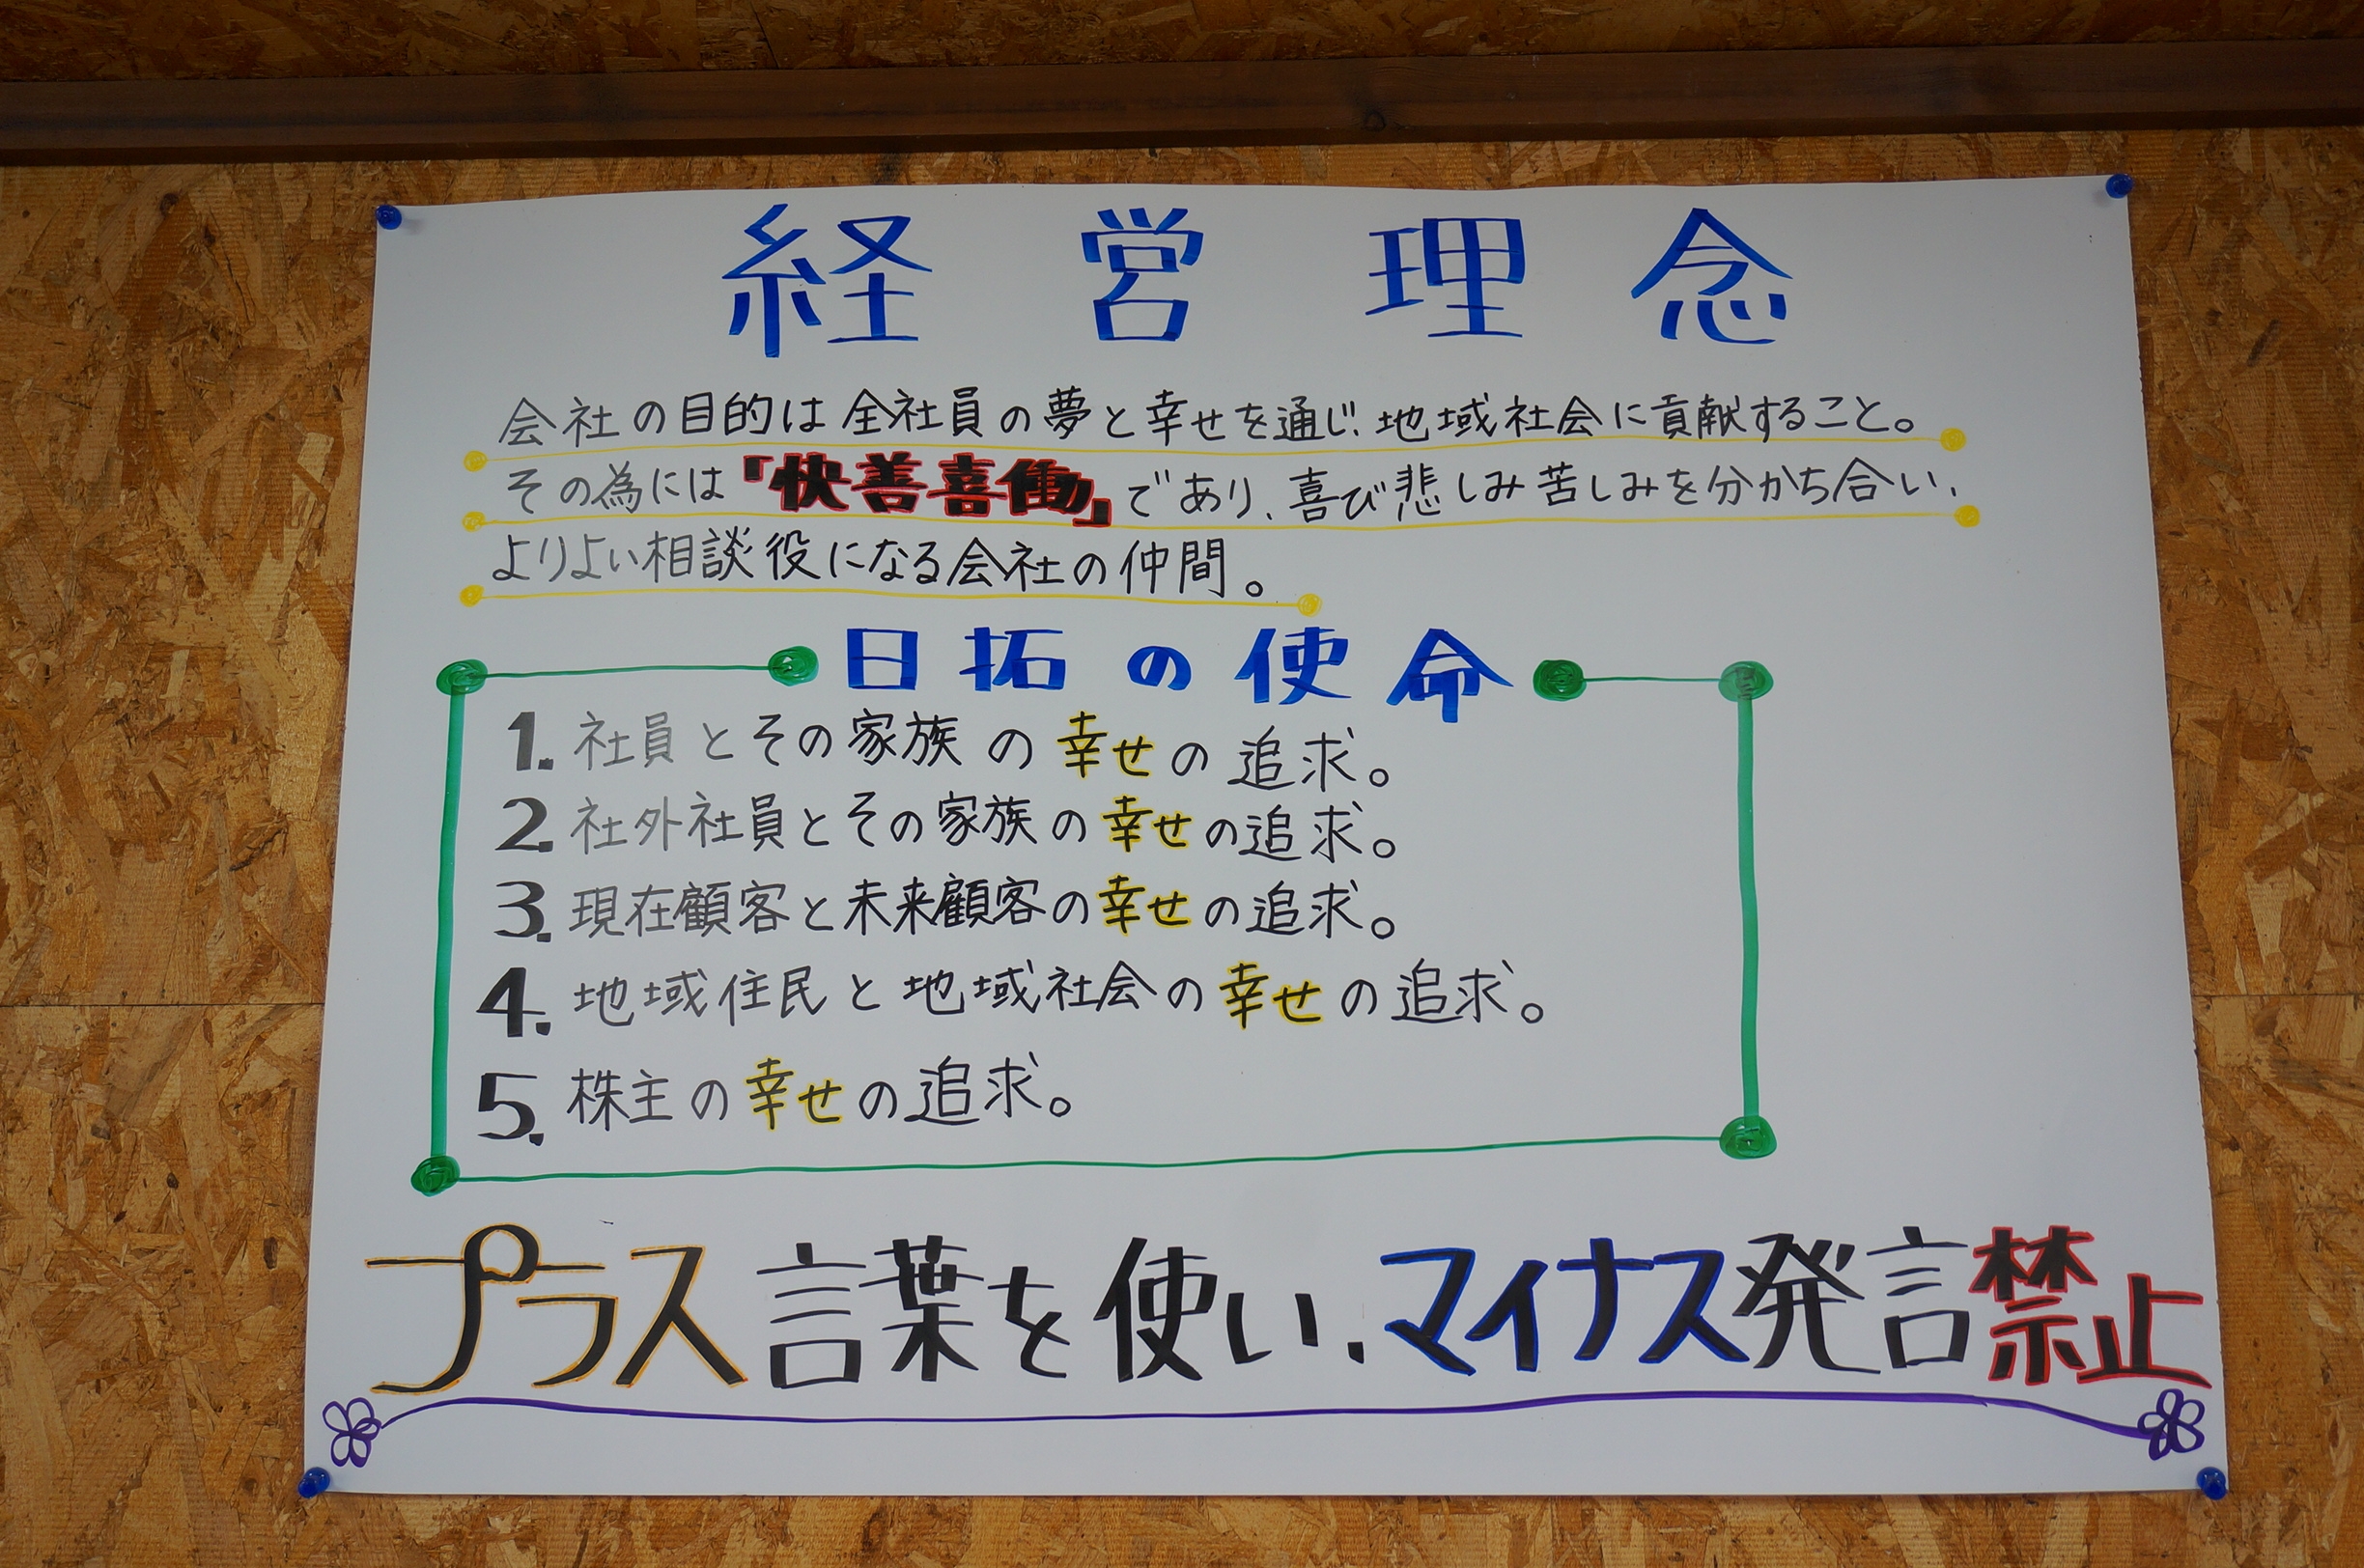 経営理念
会社の目的は全社員の夢と幸せを通じ、地域社会に貢献すること。
その為には「快善喜働」であり、喜び悲しみ苦しみを分かち合い、
よりよい相談役になる会社の仲間。
日拓の使命
1. 社員とその家族の幸せの追求。
2. 社外社員とその家族の幸せの追求。
3. 現在顧客と未来顧客の幸せの追求。
4. 地域住民と地域社会の幸せの追求。
5. 株主の幸せの追求。
プラス言葉を使い、マイナス発言禁止